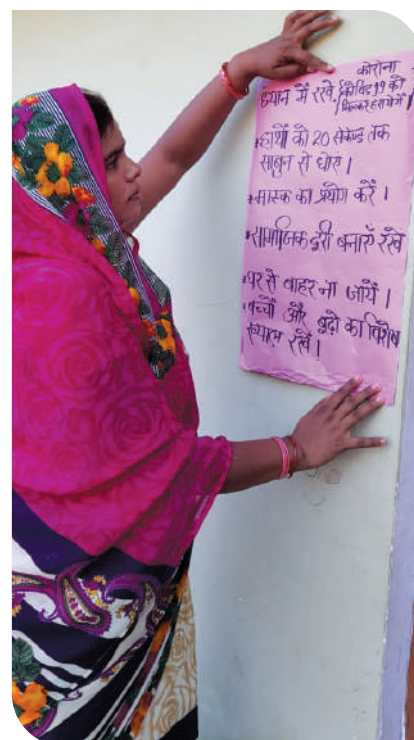 कोरोना
ध्यान में रखे, कोविड 19 को
मिलकर हरायेगें।
*हाथों को 20 सेकण्ड तक
साबुन से धोए।
*मास्क का प्रयोग करें।
*सामाजिक दूरी बनाएँ रखे
*घर से बाहर ना जायें।
*बच्चों और बुढ़ो का विशेष
ख्याल रखें।